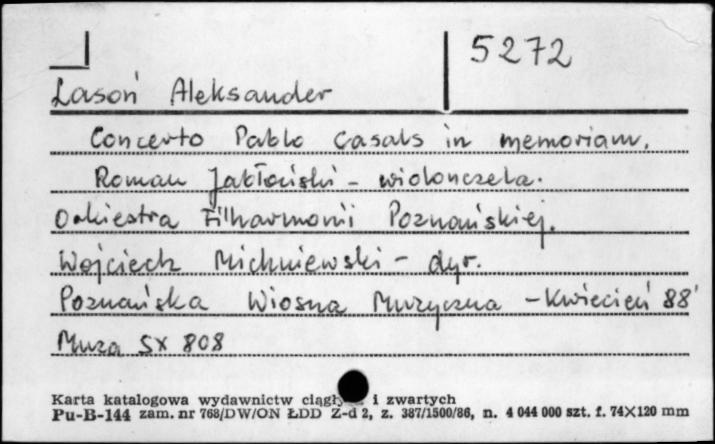 5272
Lasoń Aleksander
Concerto Pablo Casals in memoriam.
Roman Jabłoński - wiolonczela.
Orkiestra Filharmonii Poznańskiej.
Wojciech Michniewski - dyr.
Poznańska Wiosna Muzyczna - Kwiecień 88'
Muza SX 808
Karta katalogowa wydawnictw i zwartych
Pu-B-144 zam. nr 768/DW/ON ŁDD Z-d 2, z. 387/1500/86, n. 4 044 000 szt. f. 74×120 mm